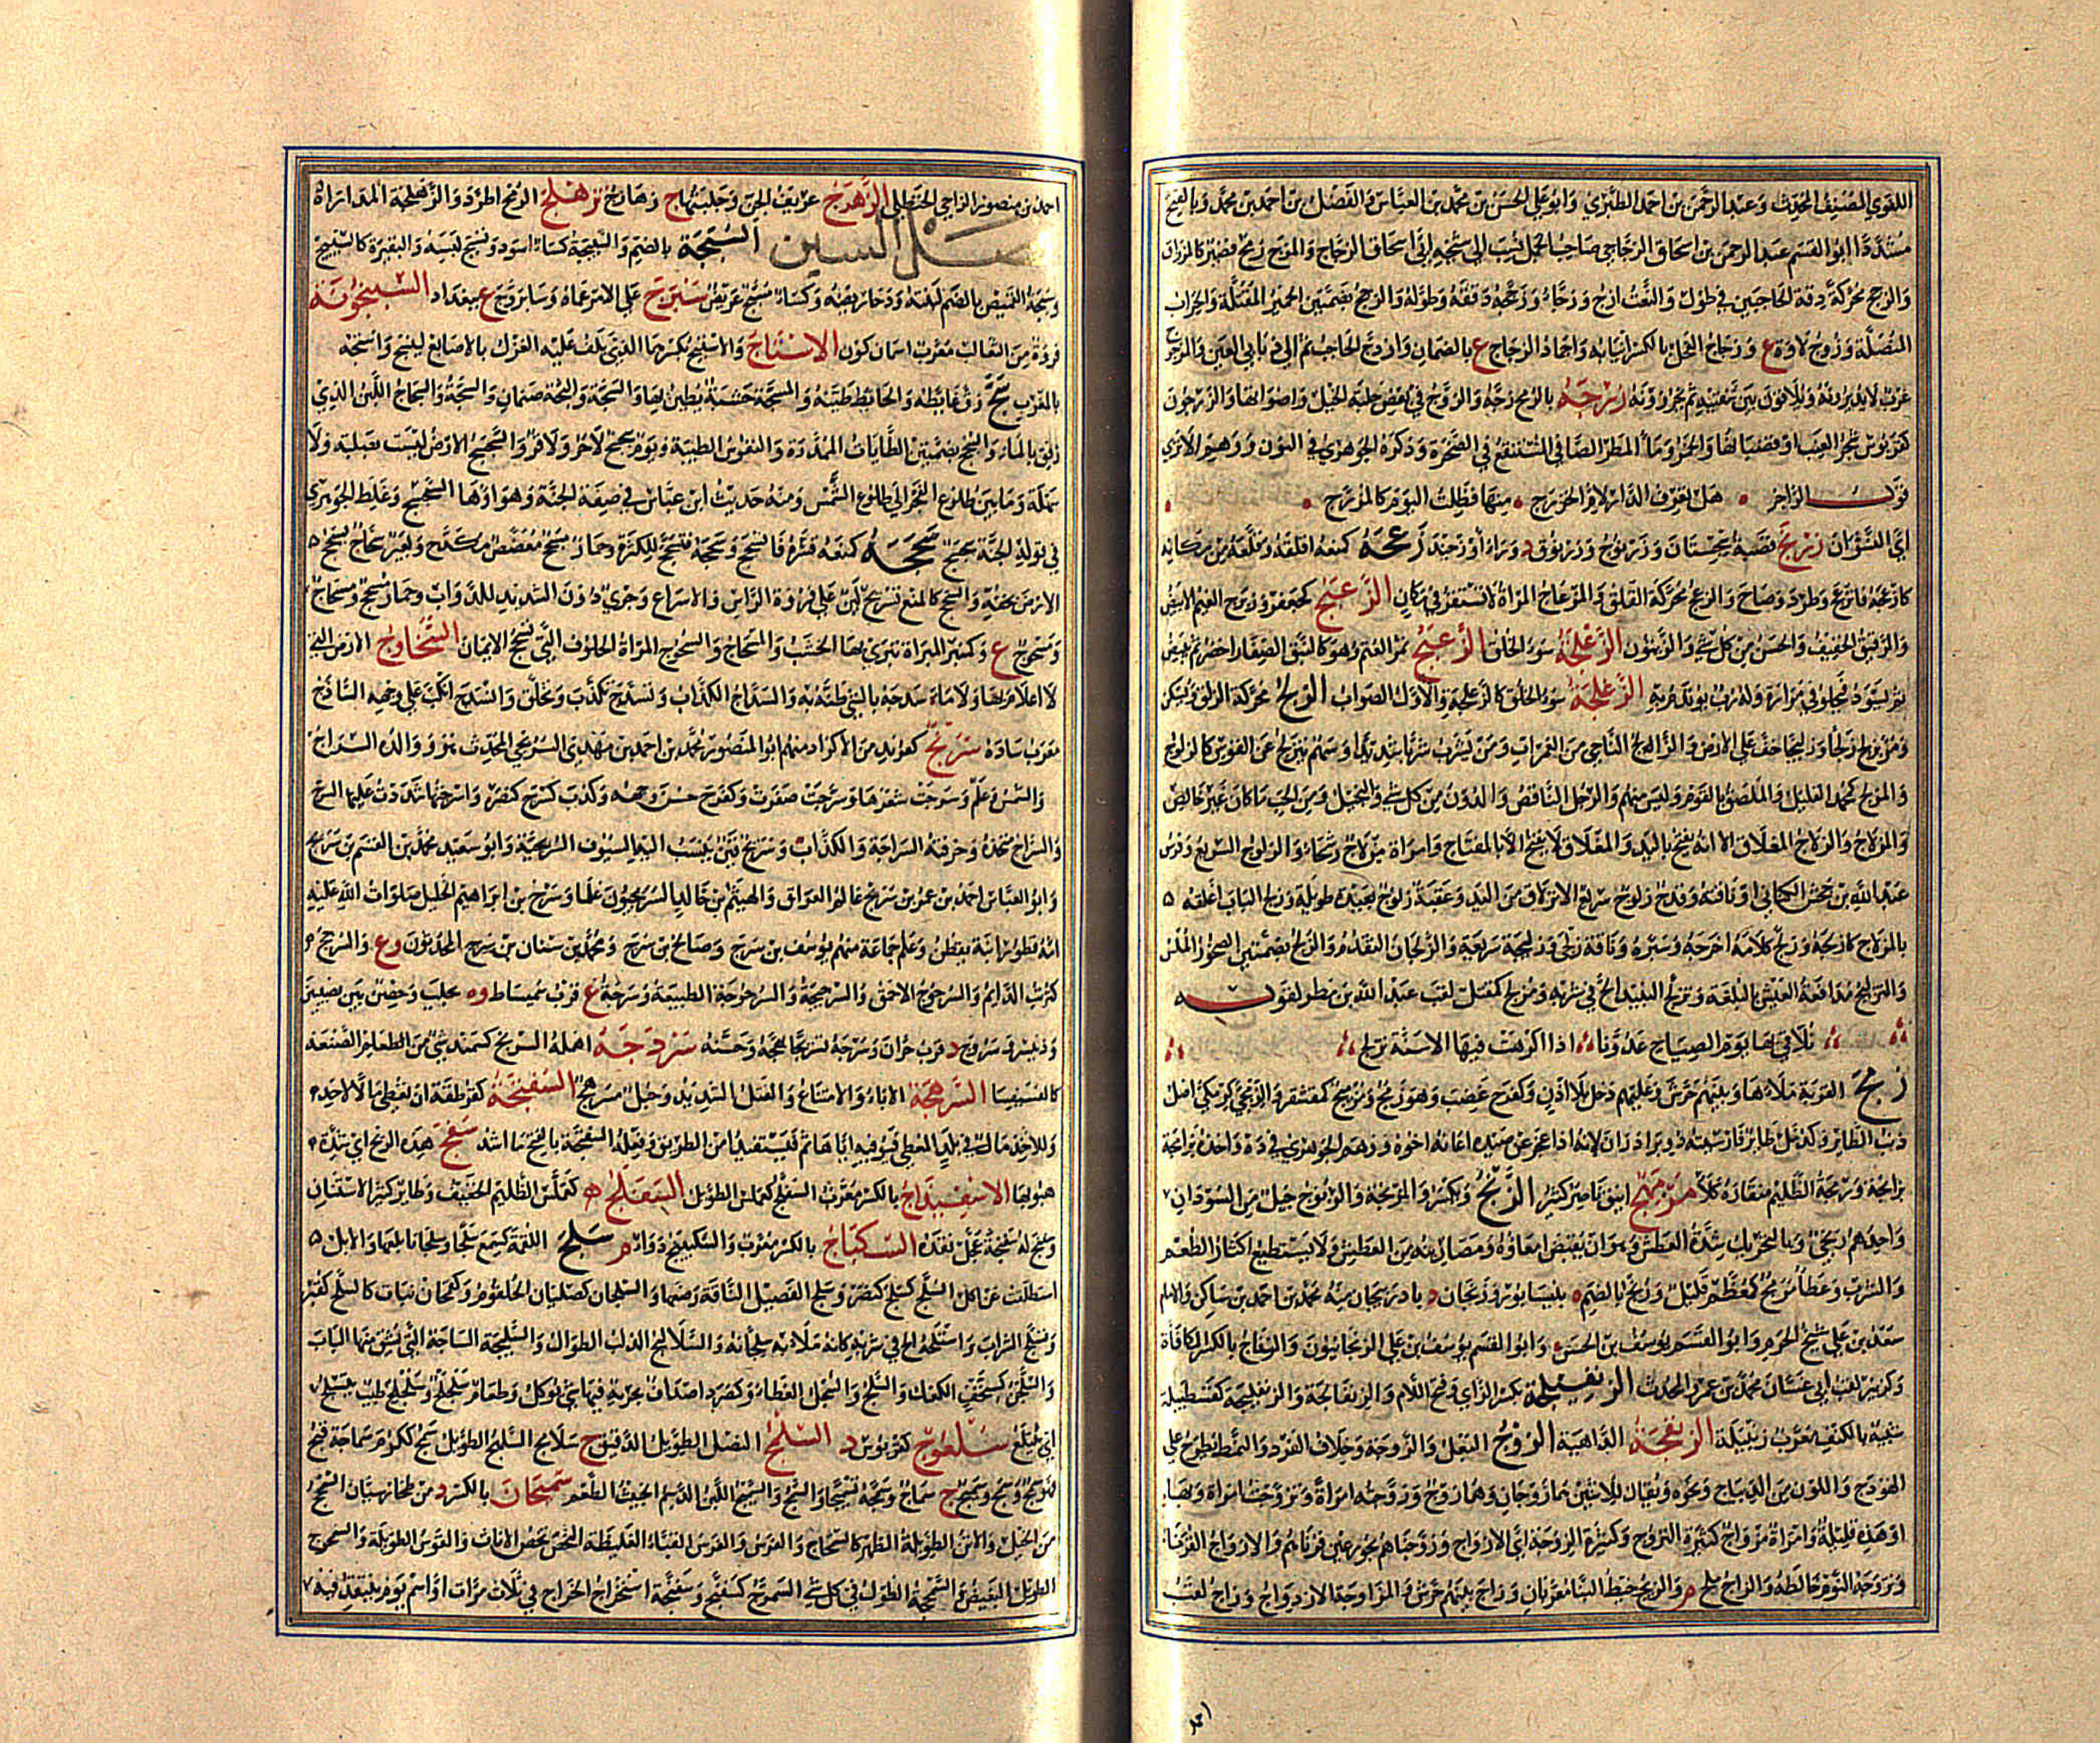 اللغوي المصنف المحدث وعبد الرحمن بن احمد الطبري وابو علي الحسن بن محمد بن العباس والفضل بن احمد بن محمد وبالفتح
مشددا ابو القسم عبد الرحمن بن اسحاق الزجاجي صاحب الجمل نسب الى شيخه ابي اسحاق الزجاج والمزج رمح قصير كالمزراق
والزجج محركة دقة الحاجبين في طول والنعت ازج وزجاء وزججه دققه وطوله والزجج بضمتين الحمير المقتلة والحراب
المنصلة وزج لاوة ع وزجاج الفحل بالكسر انيابه واجماد الزجاج ع بالصمان وازدج الحاجب تم الى ذنابى العين والمزجج
غرب لا يديرونه ويلاقون بين شفتيه ثم يخرزونه زرجه بالرمح زجه والزرج في بعض جلبة الخيل واصواتها والزرجون
كقربوس شجر العنب او قضبانها والخمر وماء المطر الصافي المستنقع في الصخرة وذكره الجوهري في النون ووهم الا ترى
قول الراجز هل تعرف الدار لام الخزرج منها فظلت اليوم كالمزرج
اي النشوان زرنج قصبة سجستان وزرنوج وزرنوق د وراء اوزجند زعجه كمنعه اقلقه وقلعه من مكانه
كازعجه فانزعج وطرد وصاح والزعج محركة القلق والمزعاج المرأة لا تستقر في مكان الزعبج كجعفر وزبرج الغيم الابيض
والرقيق الخفيف والحسن من كل شيء والزيتون الزعلجة سوء الخلق الزغبج ثمر العتم وهو كالنبق الصغار اخضر ثم يبيض
ثم يسود فيحلو في مرارة وله رب يؤتدم به الزغلجة سوء الخلق كالزعلجة والاول الصواب الزلج محركة الزلق ويسكن
ومر يزلج زلجا وزليجا خف على الارض والزالج الناجي من الغمرات ومن يشرب شربا شديدا وسهم يتزلج عن القوس كالزلوج
والمزلج كمحمد القليل والملصق بالقوم وليس منهم والرجل الناقص والدون من كل شيء والبخيل ومن الحب ما كان غير خالص
والمزلاج والزلاج المغلاق الا انه يفتح باليد والمغلاق لا يفتح الا بالمفتاح وامرأة مزلاج رسحاء والزلوج السريع وفرس
عبد الله بن جحش الكناني او ناقته وقدح زلوج سريع الانزلاق من اليد وعقبة زلوج بعيدة طويلة وزلج الباب اغلقه
بالمزلاج كازلجه وزلج كلامه اخرجه وسيره وناقة زلجى وزليجة سريعة والزلجان التقدم والزلج بضمتين الصخور الملس
والتزليج مدافعة العيش بالبلغة وتزلج النبيذ الح في شربه ومزلج كمقبل لقب عبد الله بن مطر لقوله
نلاقي بها يوم الصباح عدونا اذا اكرهت فيها الاسنة تزلج
زمج القربة ملاها وبينهم حرش وعليهم دخل بلا اذن وكفرح غضب وهو زمج ومزمج كمقشعر والزمجى كزمكى اصل
ذنب الطائر وكدمل طائر فارسيته دو برادران لانه اذا عجز عن صيده اعانه اخوه ووهم الجوهري في ده واخذه بزامجه
وزمجة الظليم منقاره كلأ مزمهج انيق ناضر كثير الزنج ويكسر والمزنجة والزنوج جيل من السودان
واحدهم زنجي وبالتحريك شدة العطش او هو ان تقبض امعاؤه ومصارينه من العطش ولا يستطيع اكثار الطعم
والشرب وعطاء مزنج كمعظم قليل وزنج بالضم ة بنيسابور وزنجان د باذربيجان منه محمد بن احمد بن شاكر والامام
سعد بن علي شيخ الحرم وابو القسم يوسف بن الحسن وابو القسم يوسف بن علي الزنجانيون والزناج بالكسر المكافأة
وكزبير لقب ابي غسان محمد بن عمرو المحدث الزنفيلجة بكسر الزاي وفتح اللام والزنفالجة والزنفيلجة كقسطبيلة
شبيه بالكنف معرب زنبيله الزنفجة الداهية الزوج البعل والزوجة وخلاف الفرد والنمط يطرح على
الهودج واللون من الديباج ونحوه ويقال للاثنين هما زوجان وهما زوج وزوجته امرأة وتزوجت امرأة وبها
او هذه قليلة وامرأة مزواج كثيرة التزوج وكثيرة الزوجة اي الازواج وزوجناهم بحور عين قرناهم والازواج القرناء
وتزوجه النوم خالطه والزاج ملح م والزيج خيط البناء معربان وزاج بينهم حرش والمزاوجة الازدواج وزاج لقب
احمد
احمد بن منصور الزاجي الحنظلي الزهزج عزيف الجن وجلبتها ج زهازج تزهلج الرمح اطرد والزهلجة المداراة
فصل السين السبجة بالضم والسبيجة كساء اسود وتسبج لبسه والبقيرة كالسبيج
وسبجة القميص بالضم لبنته ودخاريصه وكساء مسبج عريض سبرج على الامر عماه وسابروج ع ببغداد السبنجونة
فروة من الثعالب معرب اسمان كون الاستاج والاستيج بكسرهما الذي يلف عليه الغزل بالاصابع لينسج واستجة
بالمغرب سج رق غائطه والحائط طينه والمسجة خشبة يطين بها والسجة والبجة صنمان والسجة والسجاج اللبن الذي
رقق بالماء والسجج بضمتين الطايات الممدرة والنفوس الطيبة ويوم سجسج لا حر ولا قر والسجسج الارض ليست بصلبة ولا
سهلة وما بين طلوع الفجر الى طلوع الشمس ومنه حديث ابن عباس في صفة الجنة وهواؤها السجسج وغلط الجوهري
في قوله الجنة سجسج سحجه كمنعه قشره فانسحج وسحجه فتسحج للكثرة وحمار مسحج معضض مكدح وبعير سحاج يسحج
الارض بخفه والسحج كالمنع تسريح لين على فروة الراس والاسراع وجري دون الشديد للدواب وحمار مسحج ومسحاج
وسحوج ع وكمنبر المبراة يبرى بها الخشب والمسحاج والسحوج المرأة الحلوف التي تسحج الايمان السخاوج الارض التي
لا اعلام بها ولا ماء سدجه بالشيء ظنه به والسداج الكذاب وتسدج تكذب وتخلق وانسدج انكب على وجهه الساذج
معرب ساده سرنج كعربد من الاكراد منهم ابو المنصور محمد بن احمد بن مهدي السرنجي المحدث هو ووالده السراج
م والشمس وعلم وسرجت شعرها وسرجت ضفرت وكفرح حسن وجهه وكذب كسرج كنصر واسرجتها شددت عليها السرج
والسراج متخذه وحرفته السراجة والكذاب وسريج قين ينسب اليه السيوف السريجية وابو سعيد محمد بن القسم بن سريج
وابو العباس احمد بن عمر بن سريج عالم العراق والهيثم بن خالد السريجيون علما وسرج بن ابراهيم الخليل صلوات الله عليه
امه قطورا بنت يقطن وعلم جماعة منهم يوسف بن سرج وصالح بن سرج ومحمد بن سنان بن سرج المحدثون وع والسرجج
كثرب الدائم والسرجوج الاحمق والسرجيجة والسرجوجة الطبيعة وسرجة ع قرب سميساط وة بحلب وحصن بين نصيبين
ودنيسر وسروج د قرب حران وسرجه تسريجا بهجه وحسنه سردجه اهمله السريج كسمند شيء من الصنعة
كالفسيفسا السرهجة الاباء والامتناع والفتل الشديد وحبل مسرهج السفتجة كقرطقة ان تعطي مالا لاحد
وللاخذ مال في بلد المعطي فيوفيه اياها ثم فيستفيد امن الطريق وفعله السفتجة بالفتح ما اشد سفج هذه الريح اي شدة
هبوبها الاسفيداج بالكسر معرب السفنج كعملس الطويل السفلج كعملس الظليم الخفيف وطائر كثير الاستنان
وسفنج له سفنجة عجل نقده السكباج بالكسر معرب والسكبينج دواء م سلج اللقمة كسمع سلجا وسلجانا بلعها والابل
استطلقت عن اكل السلج كسلج كنصر وسلج الفصيل الناقة رضعها والسلجان كصليان الحلقوم وكعثمان نبات كالسلج كقبر
وتسلج الشراب واستلجه الح في شربه كانه ملأ به سلجانه والسلاليج الدلب الطوال والسليجة الساجة التي يشق منها الباب
والسلجن كسخت الكعك والسلج والسلج العطاء وكصرد اصداف بحرية فيها شيء يؤكل وطعام سلجلج وسلجلج طيب يتسلج
اي يبتلع سلعوج كقربوس د السلمج النصل الطويل الدقيق ج سلامج السلهج الطويل سمج ككرم سماجة قبح
فهو سمج وسمج وسميج ج سماج وسمجه تسميجا والسمج والسميج اللبن الدسم الخبيث الطعم سمنجان بالكسر د من طخارستان السمحج
من الخيل والاتن الطويلة الظهر كالسمحاج والفرس والقوس القباء الغليظة النحض تخص الاناث والقوس الطويلة والسمحوج
الطويل البغيض والسمحجة الطول في كل شيء السمرج كسفنج وسفنجة استخراج الخراج في ثلاث مرات او اسم يوم ينقد فيه